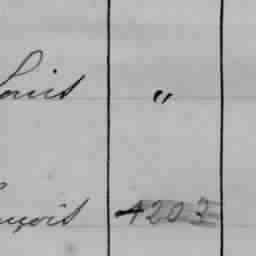 Louis "
çois 4203